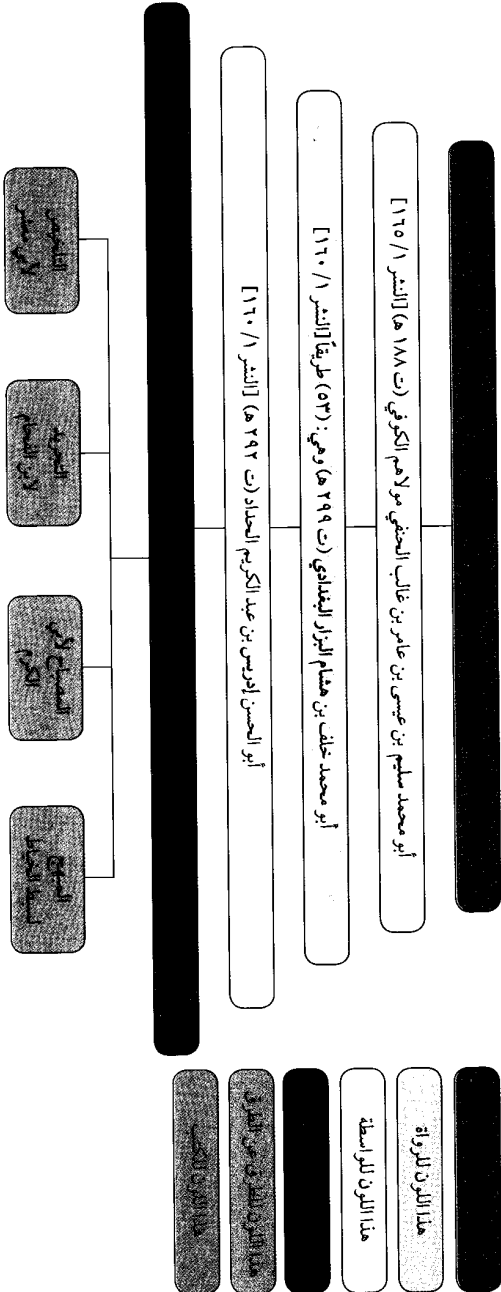 أبو محمد سليم بن عيسى بن عامر بن غالب الحنفي مولاهم الكوفي (ت ١٨٨ هـ) [النشر ١/ ١٦٥]
أبو محمد خلف بن هشام البزار البغدادي (ت ٢٩٩ هـ) وهي: (٥٣) طريقاً [النشر ١/ ١٦٠]
أبو الحسن إدريس بن عبد الكريم الحداد (ت ٢٩٢ هـ) [النشر ١/ ١٦٠]
التلخيص
لأبي معشر
التجريد
لابن الفحام
المصباح لأبي
الكرم
المبهج
لسبط الخياط
هذا اللون للرواة
هذا اللون للواسطة
هذا اللون للطرق عن الطرق
هذا اللون للكتب